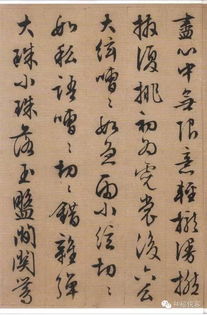 盡心中無限意輕攏慢撚
撥復挑初為霓裳後六幺
大絃嘈〻如急雨小絃切〻
如私語嘈〻切〻錯雜彈
大珠小珠落玉盤間關鶯